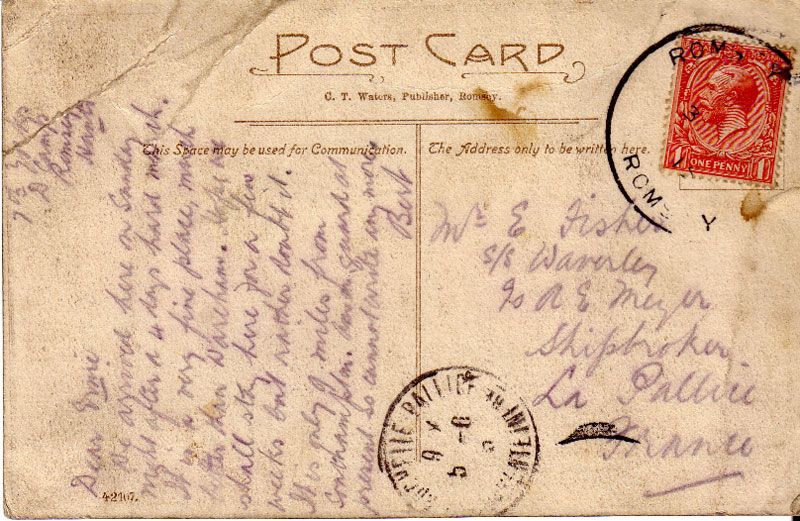 POST CARD
C. T. Waters, Publisher, Romsey.
This Space may be used for Communication.
The Address only to be written here.
D Camp
Romsey
Hants
Dear Ernie
We arrived here on Sunday
night after a 4 days hard march.
It is a very fine place, much
better than Wareham. Hope we
shall stop here for a few
weeks but rather doubt it.
It is only 9 miles from
Southampton. Am on guard at
present so cannot write any more
Bert
Mr E Fisher
S/S Waverley
c/o A E Meyer
Shipbroker
La Pallice
France
ONE PENNY
ROMSEY
ROMSEY
42107.